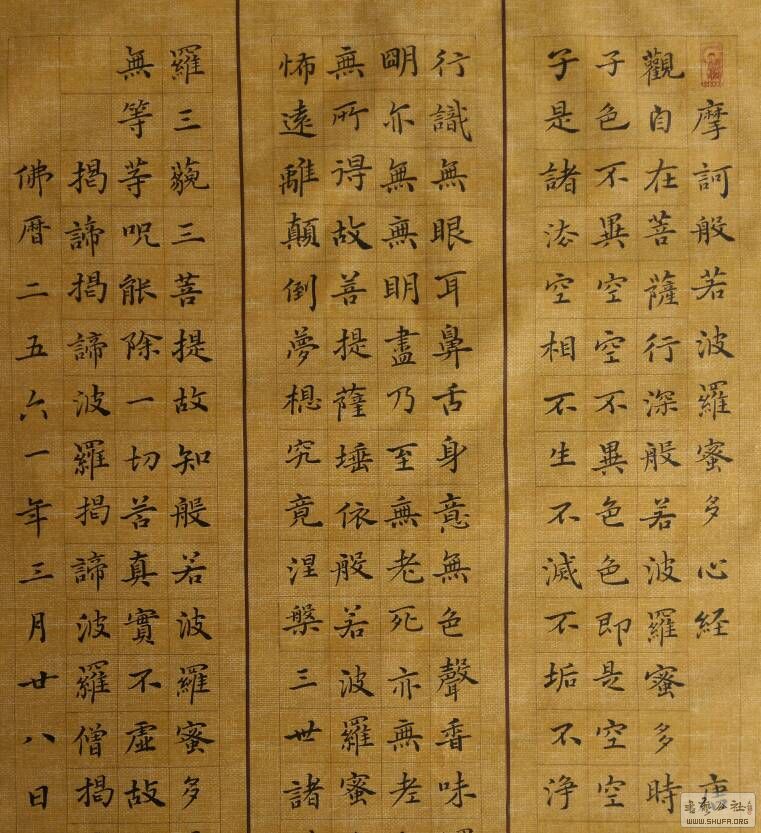 摩訶般若波羅蜜多心経
觀自在菩薩行深般若波羅蜜多時
子色不異空空不異色色即是空空
子是諸法空相不生不滅不垢不浄
行識無眼耳鼻舌身意無色聲香味
明亦無無明盡乃至無老死亦無老
無所得故菩提薩埵依般若波羅蜜
怖遠離顛倒夢想究竟涅槃三世諸
羅三藐三菩提故知般若波羅蜜多
無等等呪能除一切苦真實不虛故
揭諦揭諦波羅揭諦波羅僧揭
佛曆二五六一年三月廿八日
WWW.SHUFA.ORG